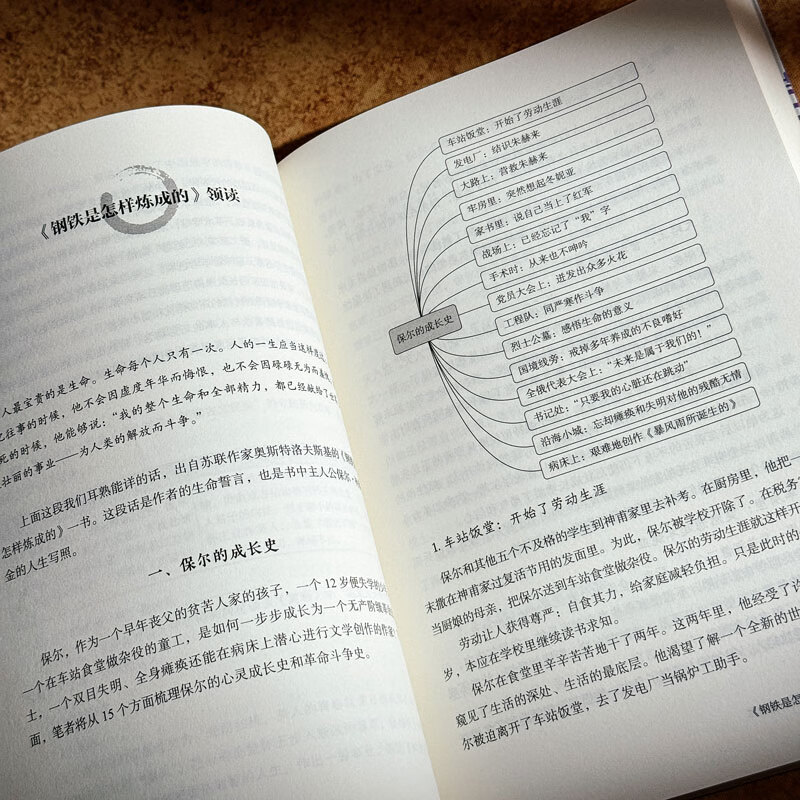 《钢铁是怎样炼成的》领读
人最宝贵的是生命。生命每个人只有一次。人的一生应当这样度过
往事的时候,他不会因虚度年华而悔恨,也不会因碌碌无为而
死的时候,他能够说:“我的整个生命和全部精力,都已经献给了
壮丽的事业——为人类的解放而斗争。”
上面这段我们耳熟能详的话,出自苏联作家奥斯特洛夫斯基的《
怎样炼成的》一书。这段话是作者的生命誓言,也是书中主人公保尔·
金的人生写照。
一、保尔的成长史
保尔,作为一个早年丧父的贫苦人家的孩子,一个12岁便失学的
一个在车站食堂做杂役的童工,是如何一步步成长为一个无产阶级革命
士,一个双目失明、全身瘫痪还能在病床上潜心进行文学创作的作者
面,笔者将从15个方面梳理保尔的心灵成长史和革命斗争史。
保尔的成长史
车站饭堂:开始了劳动生涯
发电厂:结识朱赫来
大路上:营救朱赫来
牢房里:突然想起冬妮亚
家书里:说自己当上了红军
战场上:已经忘记了“我”字
手术时:从来也不呻吟
党员大会上:迸发出众多火花
工程队:同严寒作斗争
烈士公墓:感悟生命的意义
国境线旁:戒掉多年养成的不良嗜好
全俄代表大会上:“未来是属于我们的!”
书记处:“只要我的心脏还在跳动”
沿海小城:忘却瘫痪和失明对他的残酷无情
病床上:艰难地创作《暴风雨所诞生的》
1.车站饭堂:开始了劳动生涯
保尔和其他五个不及格的学生到神甫家里去补考。在厨房里,他把一
末撒在神甫家过复活节用的发面里。为此,保尔被学校开除了。在税务
当厨娘的母亲,把保尔送到车站食堂做杂役。保尔的劳动生涯就这样开
劳动让人获得尊严:自食其力,给家庭减轻负担。只是此时的
岁,本应在学校里继续读书求知。
保尔在食堂里辛辛苦苦地干了两年。这两年里,他经受了
窥见了生活的深处、生活的最底层。他渴望了解一个全新的世
尔被迫离开了车站饭堂,去了发电厂当锅炉工助手。
《钢铁是怎